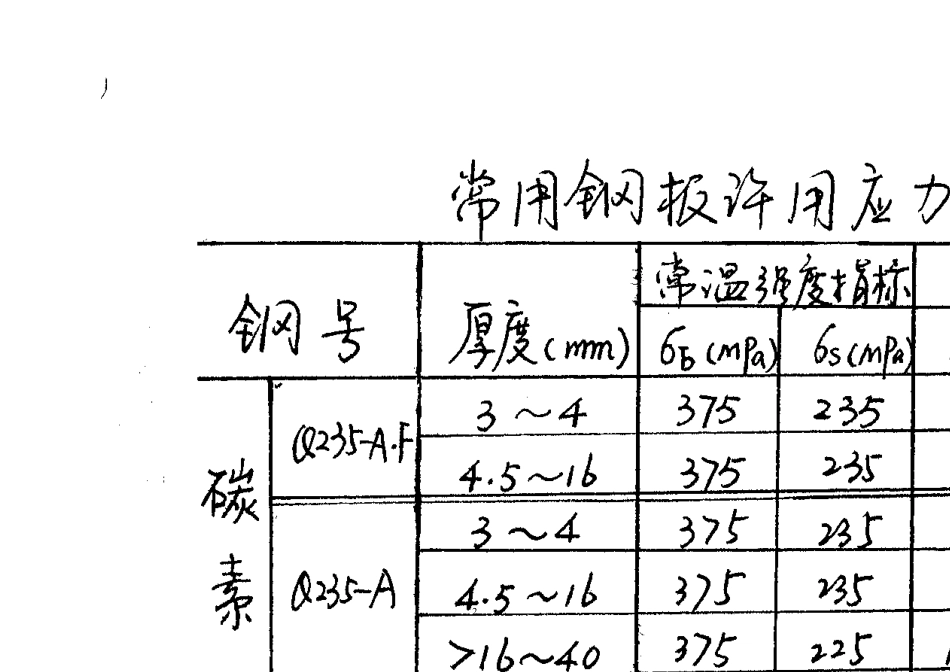 常用钢板许用应力
钢号 厚度(mm) 常温强度指标
σb(mPa) σs(mPa)
碳素 Q235-A.F 3~4 375 235
4.5~16 375 235
Q235-A 3~4 375 235
4.5~16 375 235
>16~40 375 225